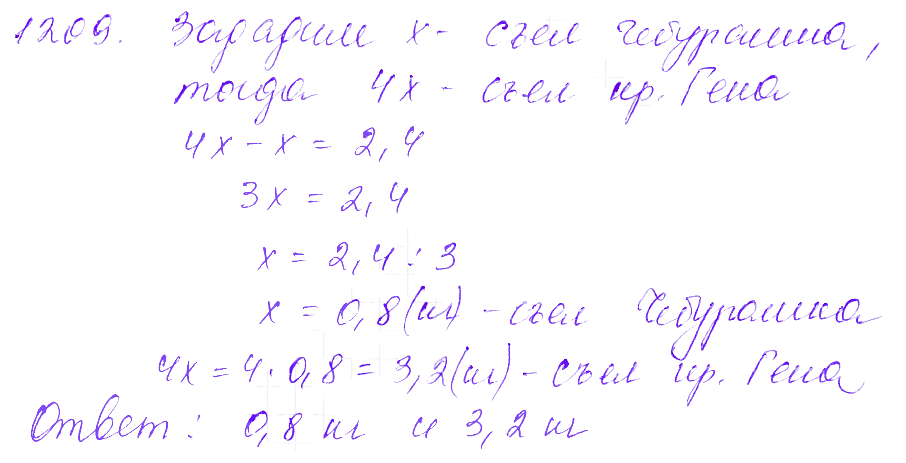 1209. Зададим x - съел Чебурашка,
тогда 4x - съел кр. Гена
4x - x = 2,4
3x = 2,4
x = 2,4 : 3
x = 0,8 (кг) - съел Чебурашка
4x = 4 · 0,8 = 3,2 (кг) - съел кр. Гена
Ответ: 0,8 кг и 3,2 кг